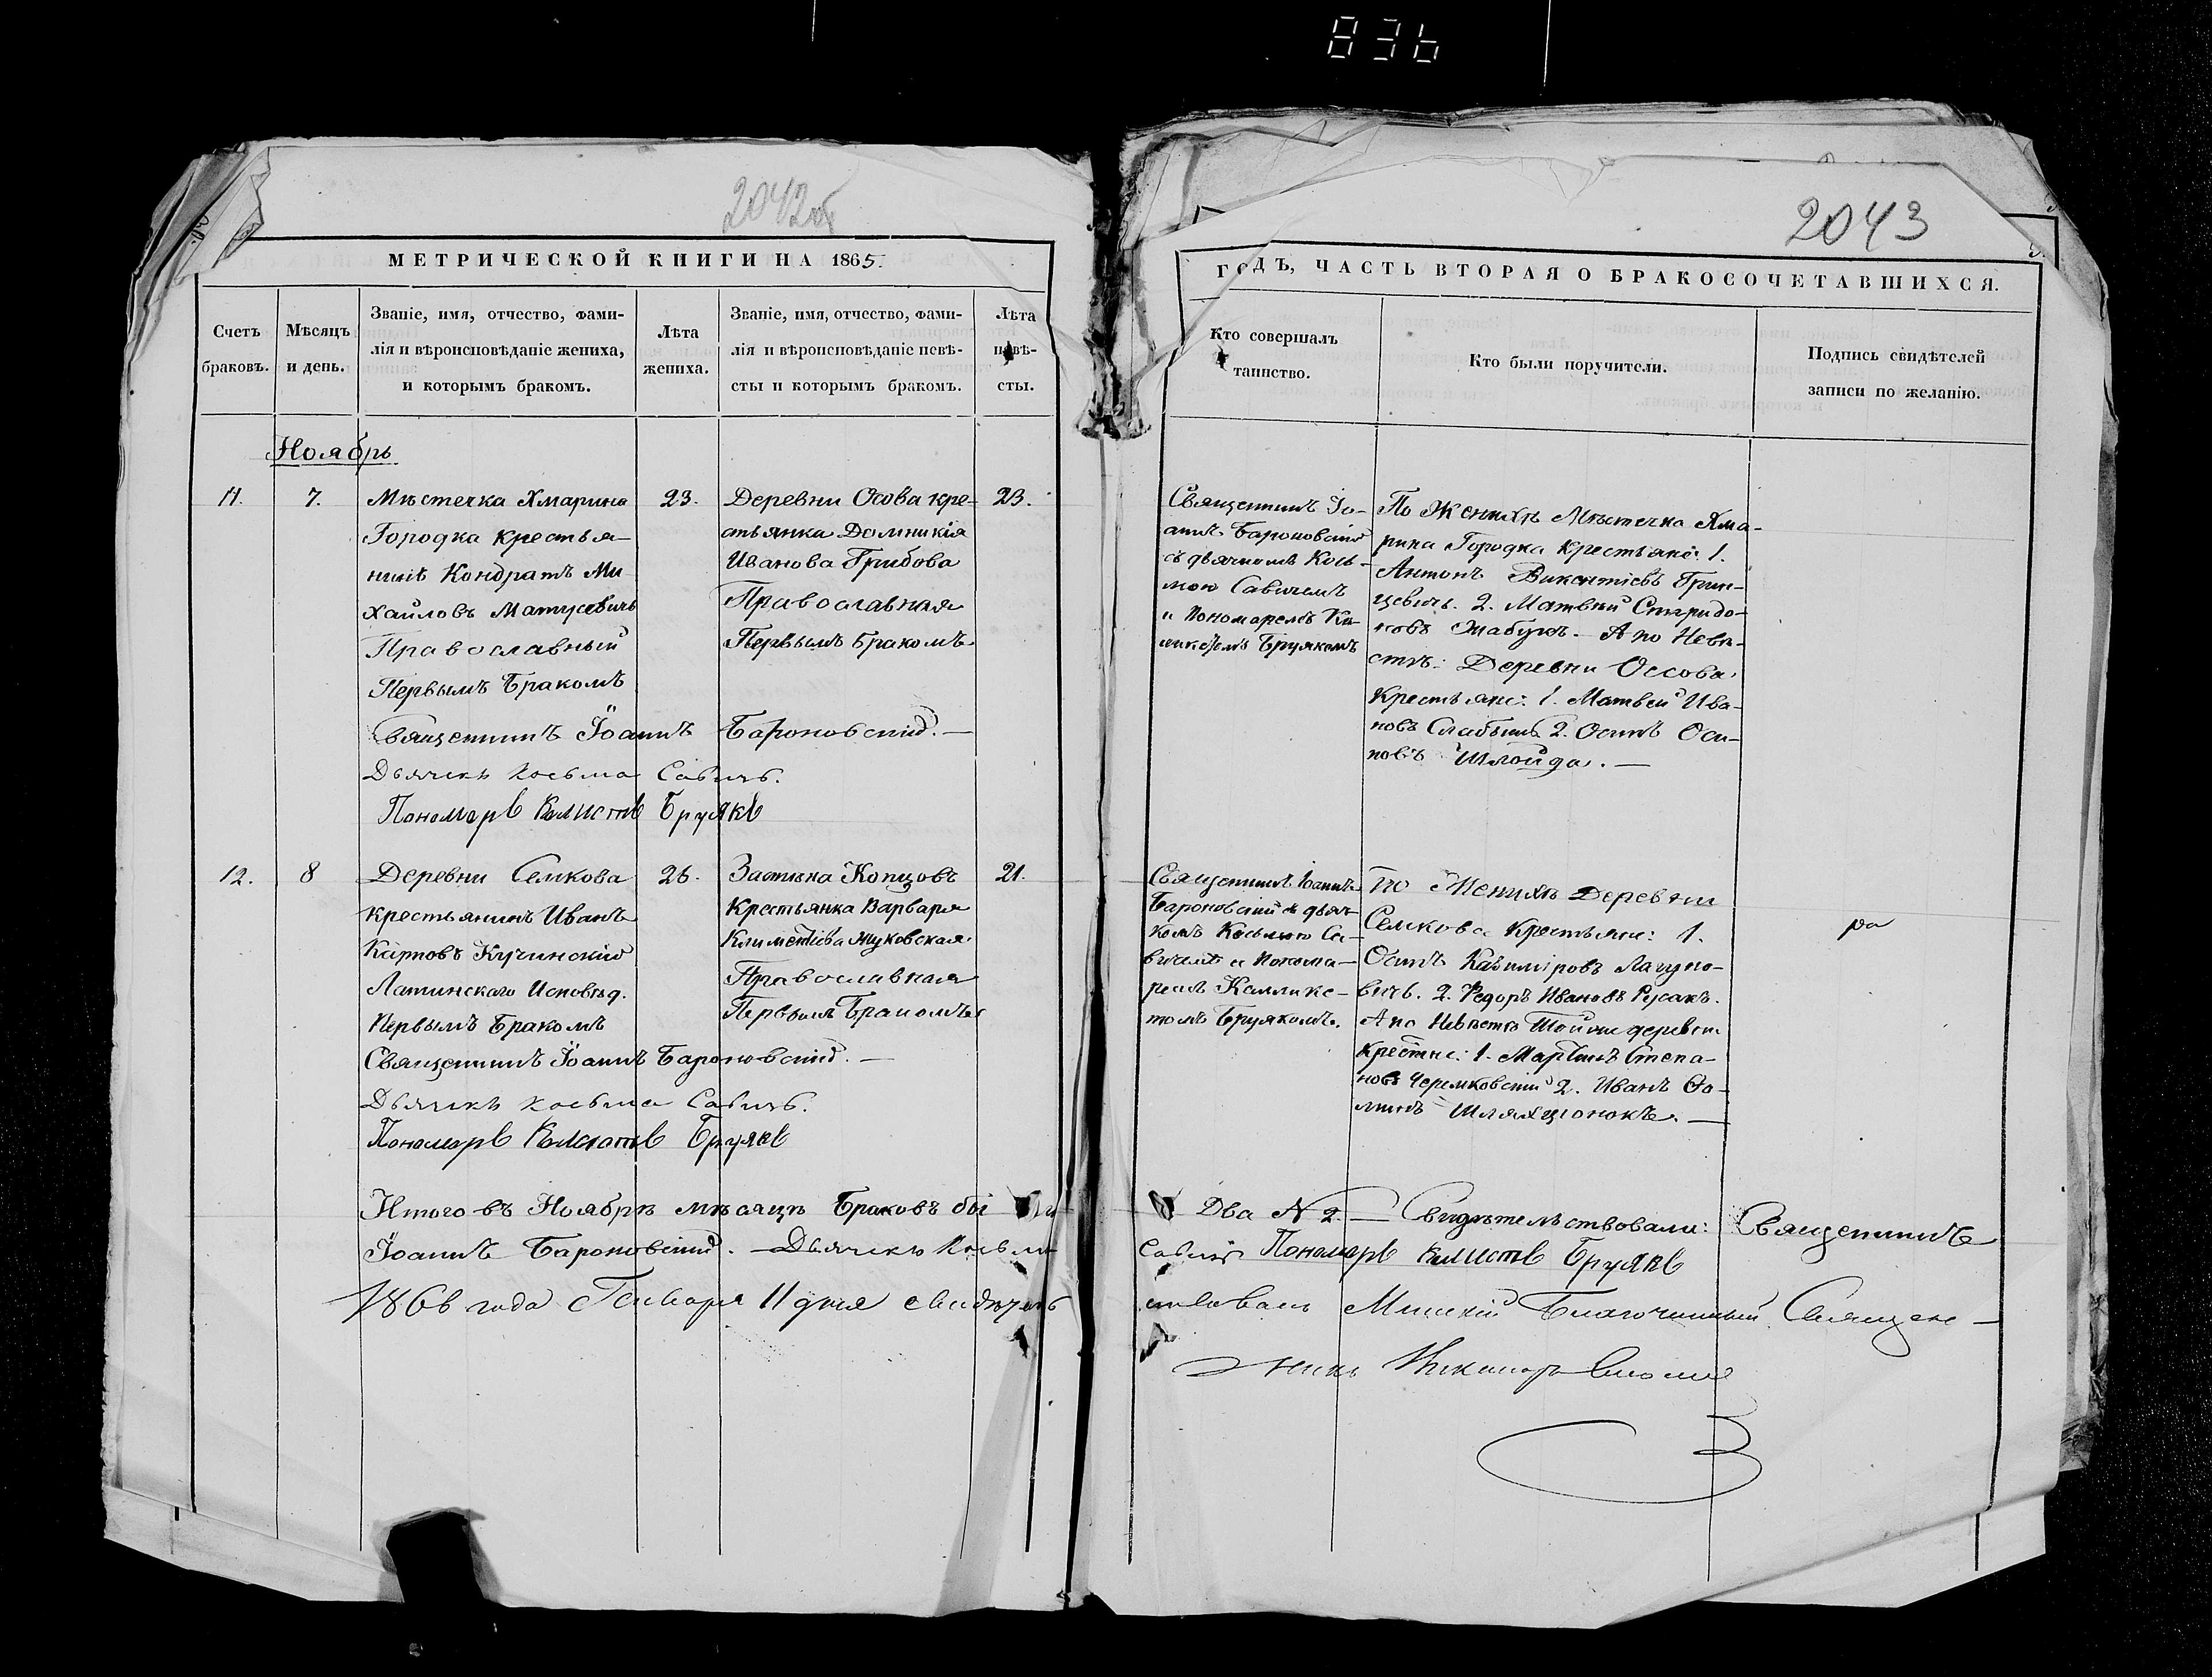 836
2042об
2043
МЕТРИЧЕСКОЙ КНИГИ НА 1865.
ГОДЪ, ЧАСТЬ ВТОРАЯ О БРАКОСОЧЕТАВШИХСЯ.
Счетъ
браковъ.
Мѣсяцъ
и день.
Званіе, имя, отчество, фами-
лія и вѣроисповѣданіе жениха,
и которымъ бракомъ.
Лѣта
жениха.
Званіе, имя, отчество, фами-
лія и вѣроисповѣданіе невѣ-
сты и которымъ бракомъ.
Лѣта
невѣ-
сты.
Кто совершалъ
таинство.
Кто были поручители.
Подпись свидѣтелей
записи по желанію.
Ноябрь
11.
7.
Мѣстечка Хмарина
Городка крестья-
нинъ Кондратъ Ми
хайловъ Матусевичъ
Православный
Первымъ Бракомъ
23.
Деревни Осова кре-
стьянка Домникія
Иванова Грибова
Православная
Первымъ Бракомъ
23.
Священникъ Іо-
аннъ Бароновскій
съ дьячкомъ Кось-
мою Савичемъ
и Пономаремъ
Бруякомъ
По Женихѣ Мѣстечка Хма-
рина Городка Крестьяне: 1.
Антонъ Викентіевъ Грин-
цевичъ. 2. Матвѣй Спиридо-
новъ Жабукъ. А по Невѣ-
стѣ: Деревни Оссова
Крестьяне: 1. Матвей Ива-
новъ 2. Осипъ Оси-
повъ Шлойда.
Священникъ Іоаннъ Бароновскій.
Дьячекъ Косьма Савичъ.
Пономаръ Калистъ Бруякъ
12.
8
Деревни Семкова
крестьянинъ Иванъ
Карповъ Кучинскій
Латинскаго Исповѣд.
Первымъ Бракомъ
26.
Застѣнка Копцовъ
Крестьянка Варвара
Климентіева Жуковская
Православная
Первымъ Бракомъ
21.
Священникъ Іоаннъ
Бароновскій съ дьяч-
комъ Косьмою Са-
вичемъ и Понома-
ремъ Калликс-
томъ Бруякомъ.
По Женихѣ Деревни
Семкова Крестьяне: 1.
Осипъ Казиміровъ Лагуно-
вичъ. 2. Федоръ Ивановъ Русакъ.
А по Невѣстѣ Той же деревни
Крестьяне: 1. Мартинъ Степа-
новъ Черемковскій 2. Иванъ Фо-
минъ Шляхціонокъ.
ра
Священникъ Іоаннъ Бароновскій.
Дьячекъ Косьма Савичъ.
Пономаръ Калистъ Бруякъ
Итого въ Ноябрѣ мѣсяцѣ Браковъ бы Два N 2. Свидѣтельствовали: Священникъ
Іоаннъ Бароновскій. Дьячекъ Косьма Савичъ Пономаръ Калистъ Бруякъ
1866 года Генваря 11 дня свидѣтель ствовалъ Минскій Благочинный Священ-
никъ Никаноръ